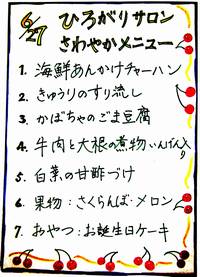 6/27 ひろがりサロン
さわやかメニュー
1. 海鮮あんかけチャーハン
2. きゅうりのすり流し
3. かぼちゃのごま豆腐
4. 牛肉と大根の煮物 いんげん入り
5. 白菜の甘酢づけ
6. 果物:さくらんぼ・メロン
7. おやつ:お誕生日ケーキ